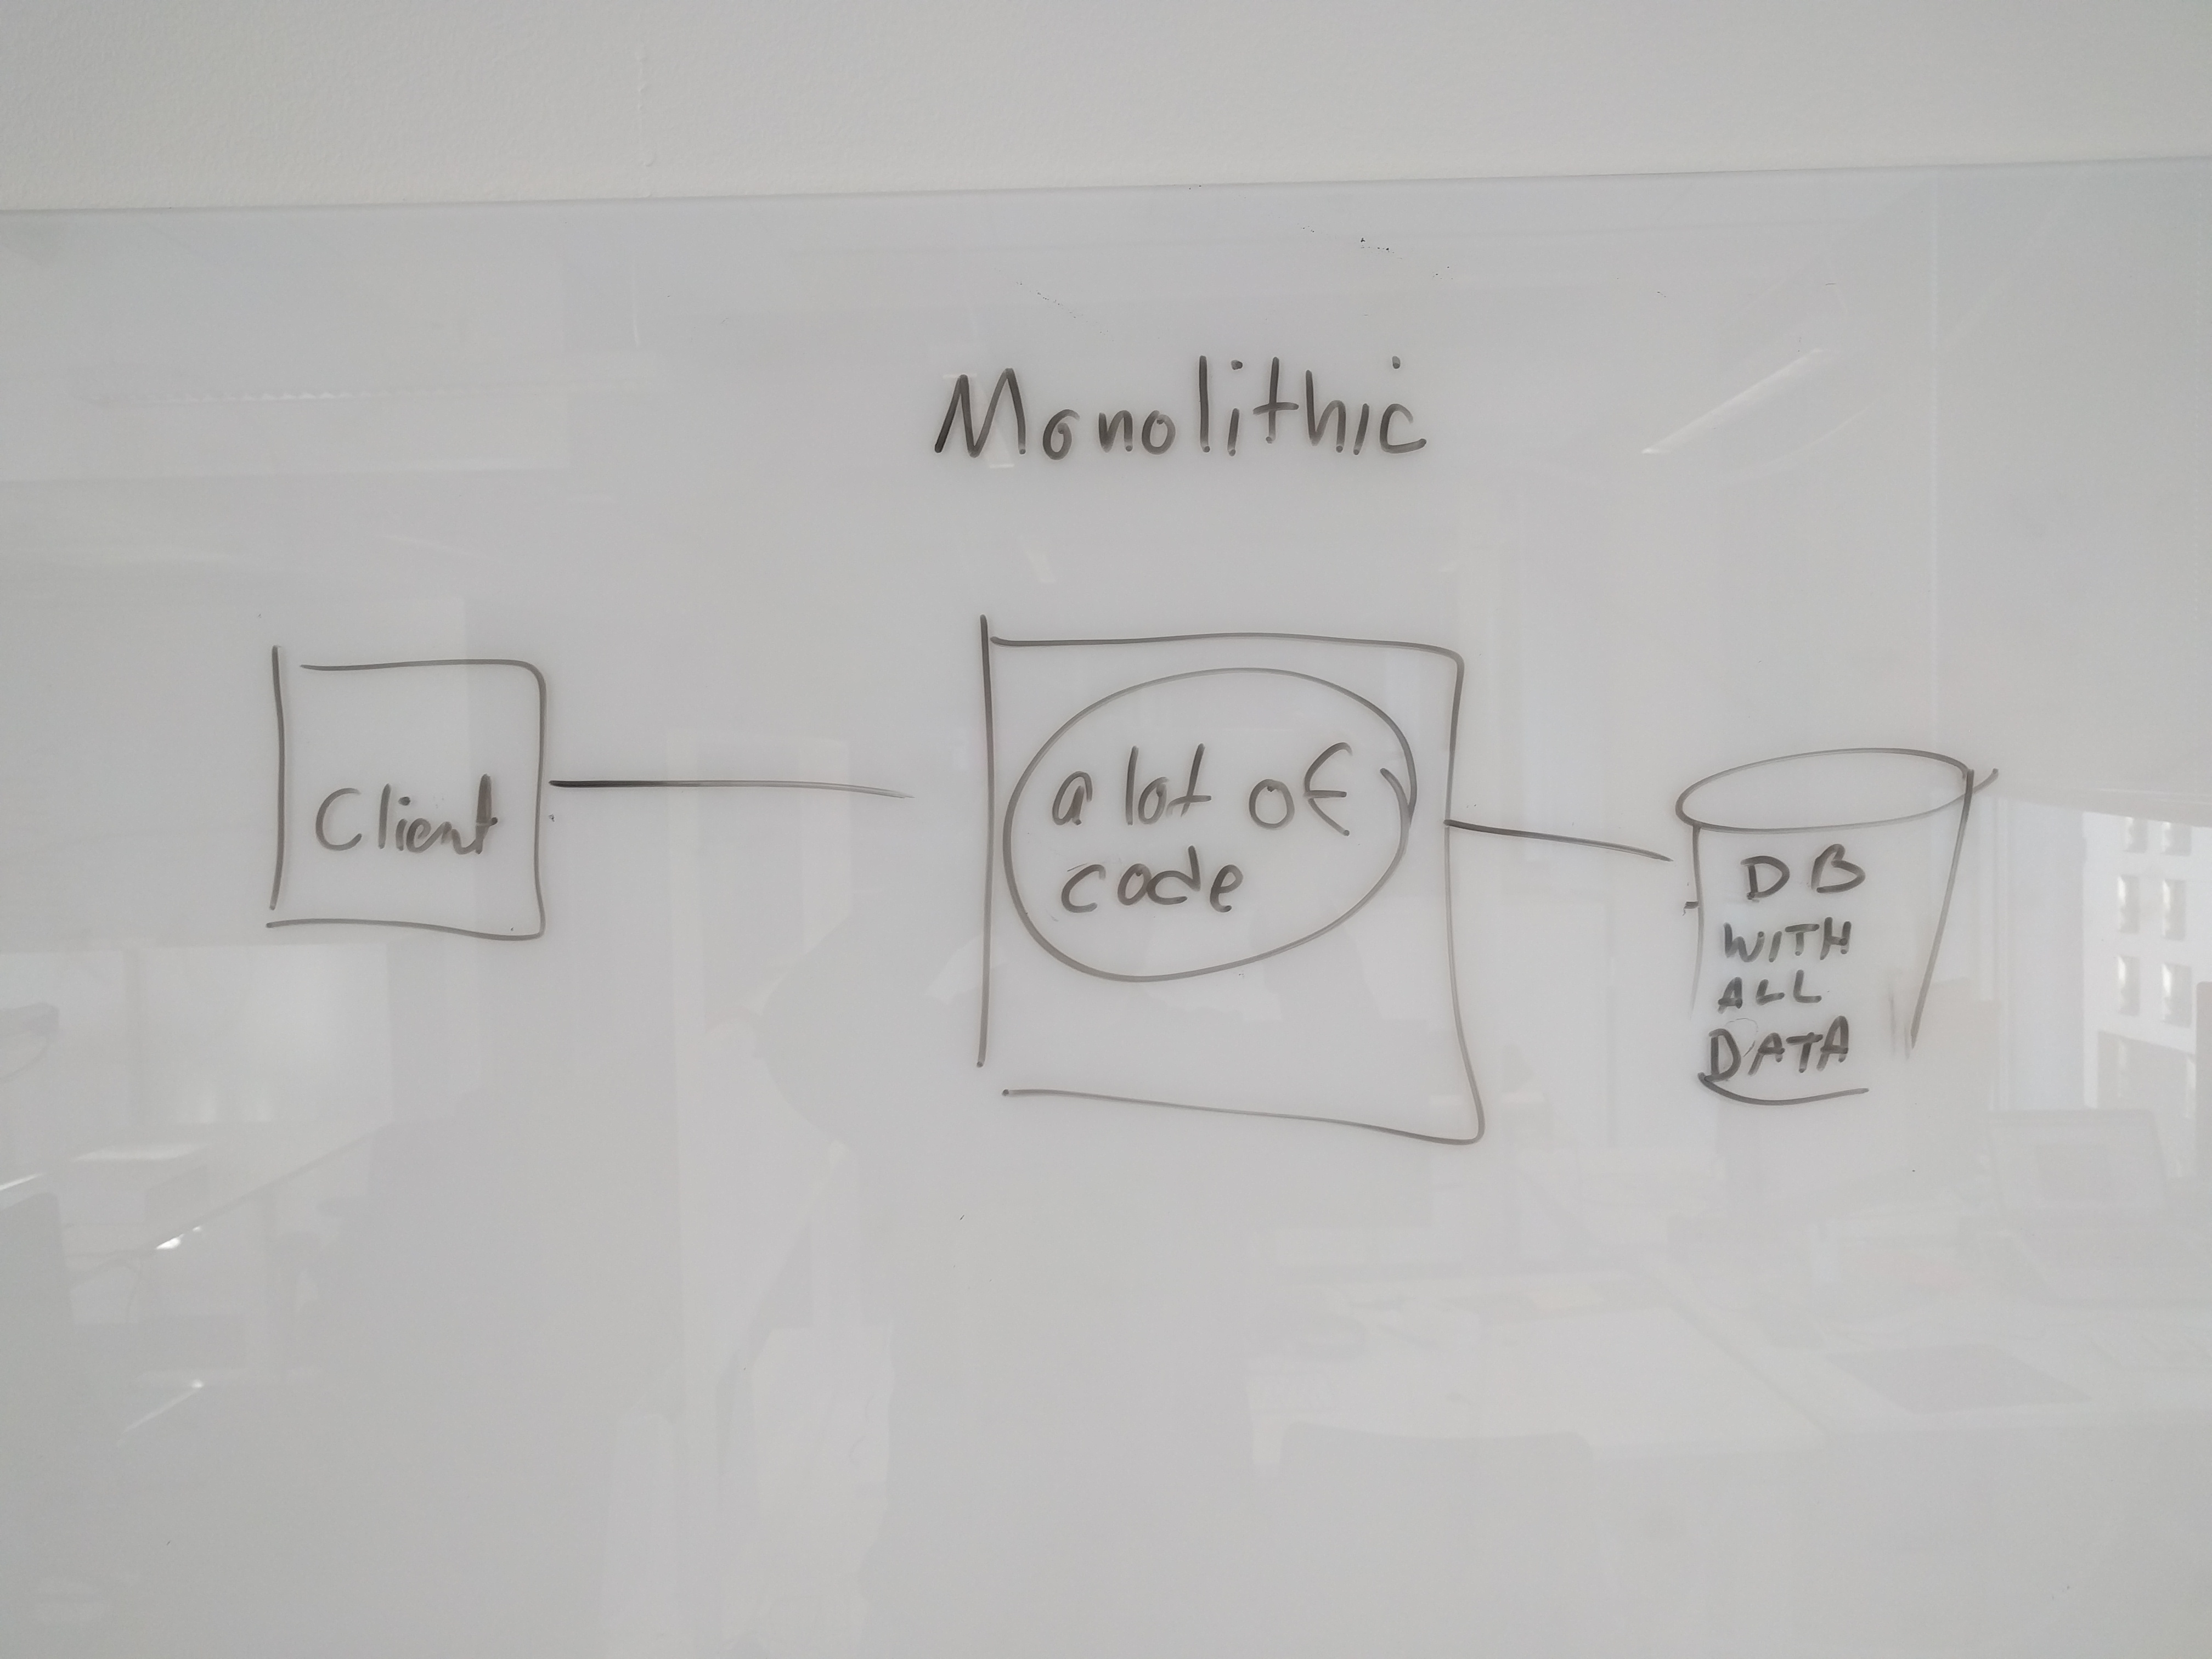 Monolithic
Client
a lot of
code
DB
WITH
ALL
DATA